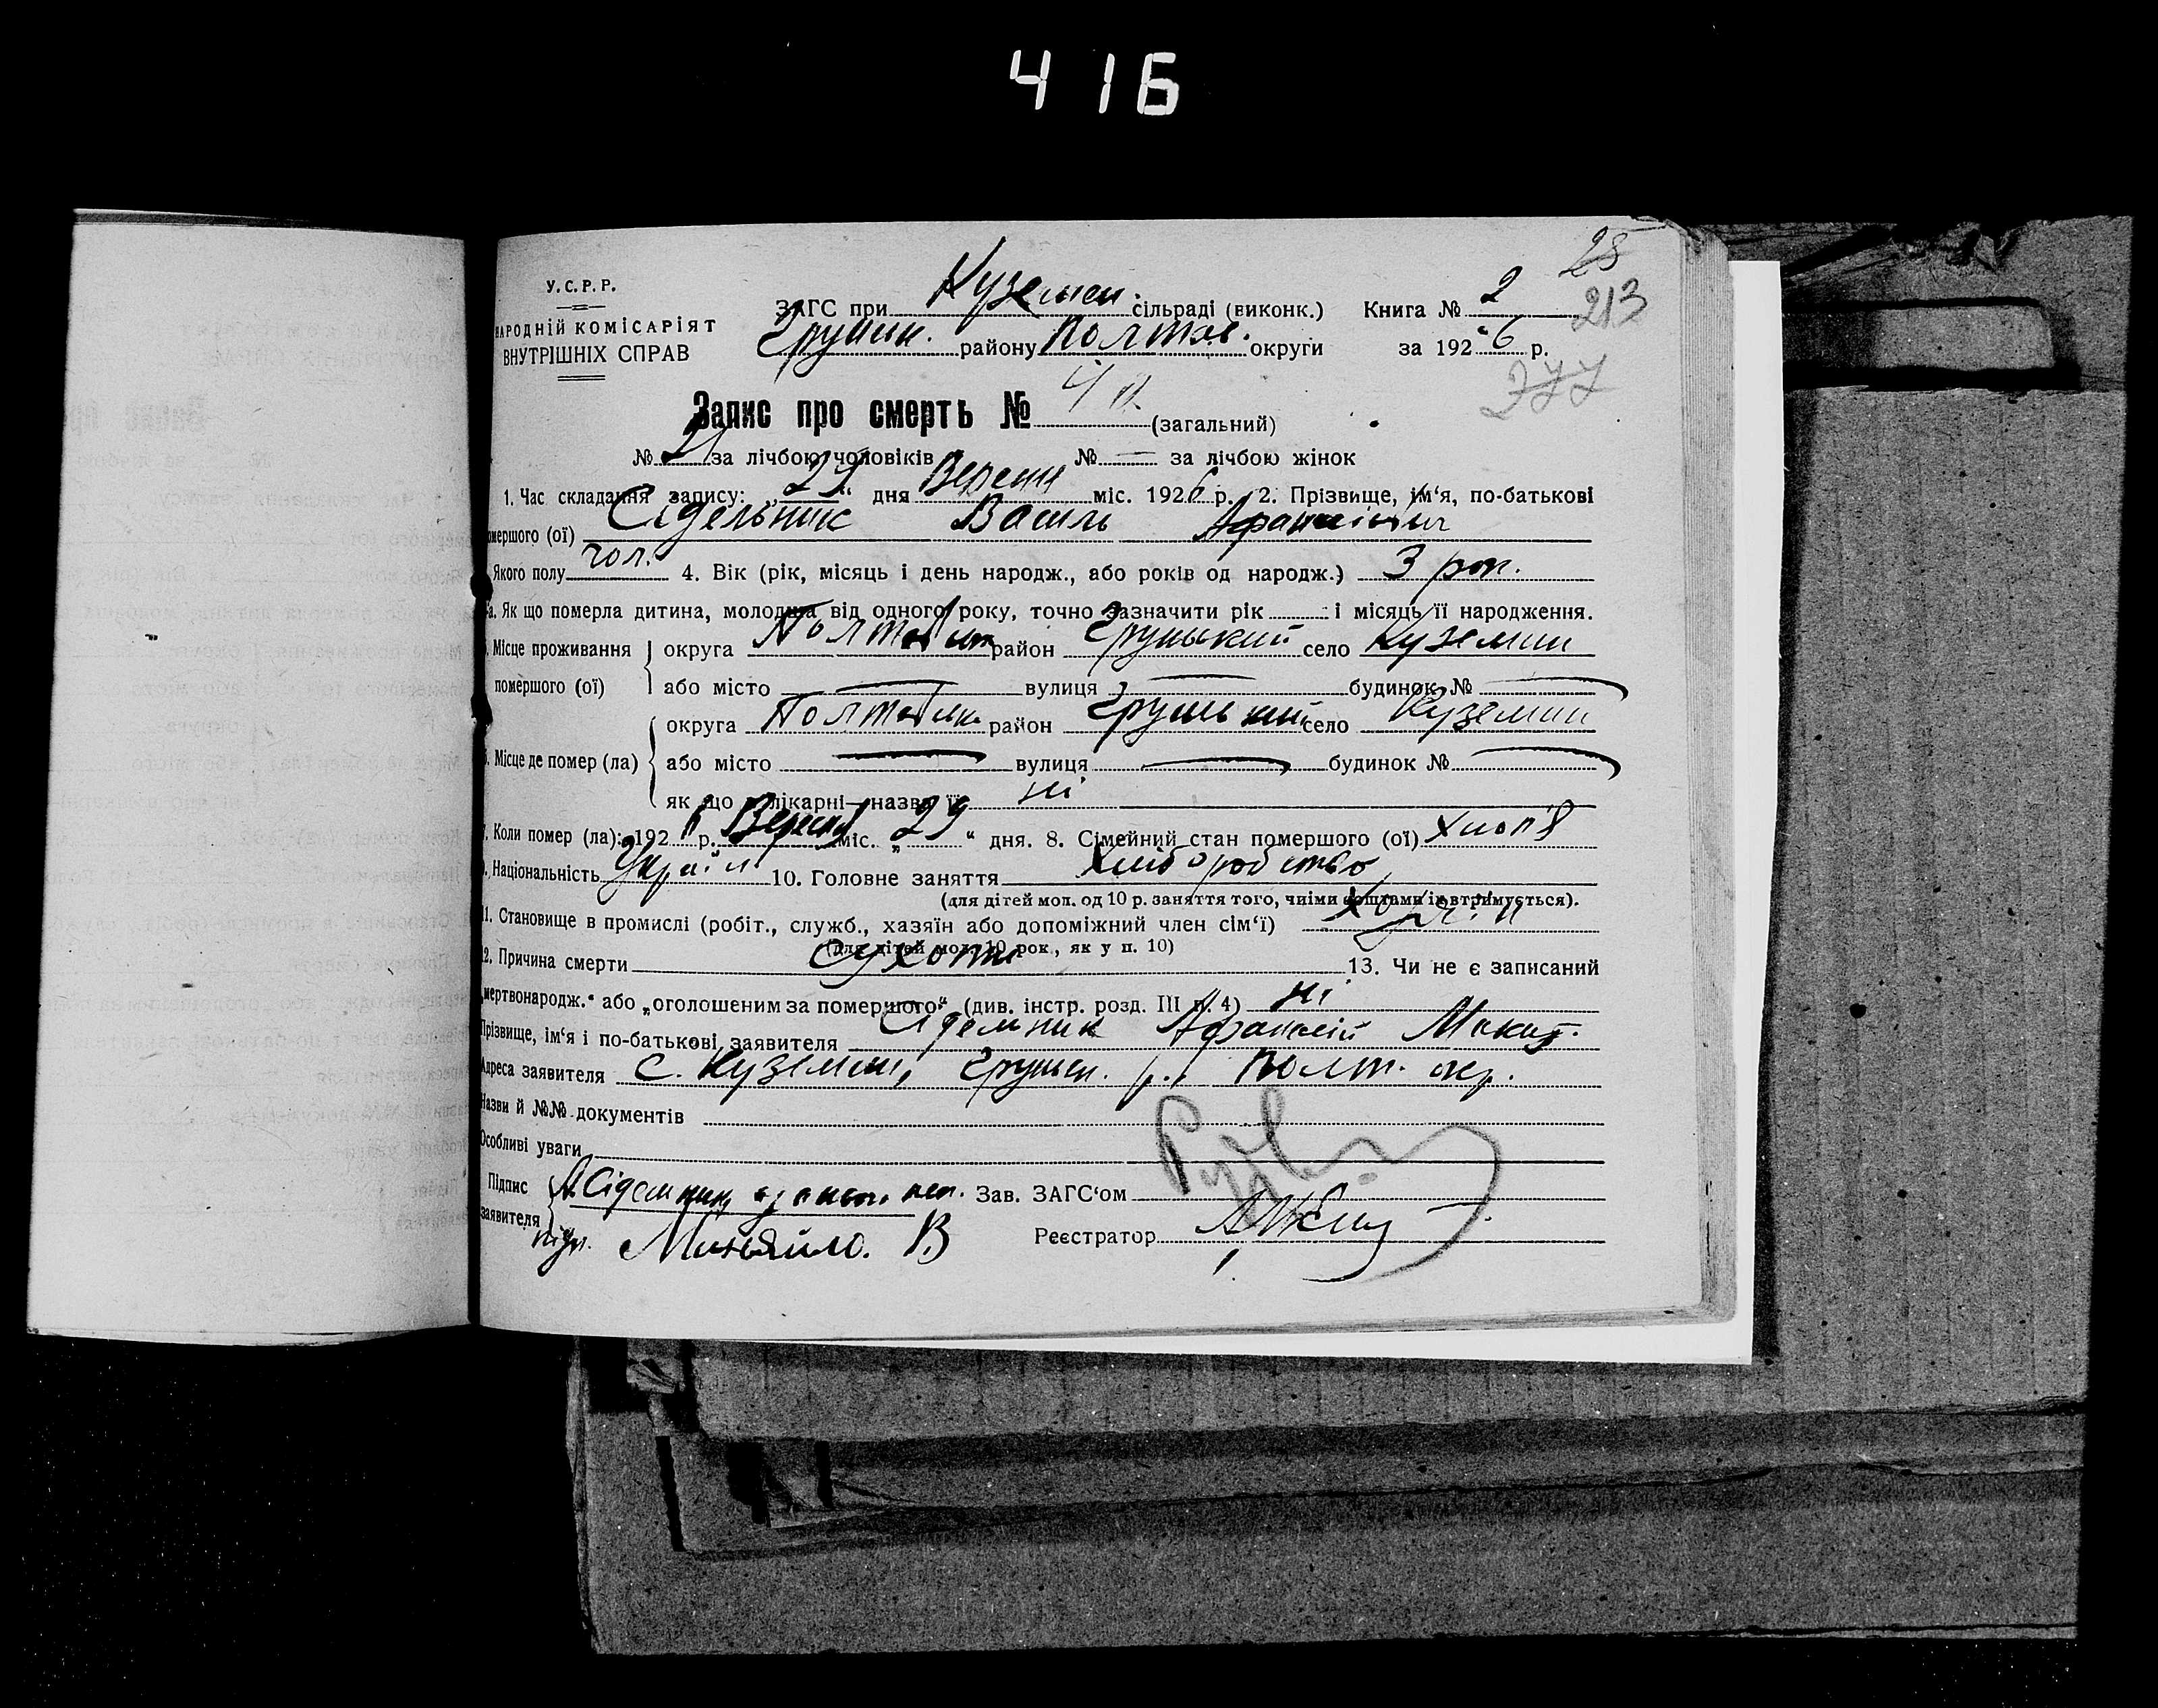 416
28
213
377
У.С.Р.Р.
НАРОДНІЙ КОМІСАРІЯТ
ВНУТРІШНІХ СПРАВ
ЗАГС при Куземен. сільраді (виконк.) Книга № 2
Груньк. району Полтав. округи за 1926 р.
Запис про смерть № (загальний)
№ 21 за лічбою чоловіків № — за лічбою жінок
1. Час складання запису: „29“ дня Вересня міс. 1926 р. 2. Прізвище, ім‘я, по-батькові
помершого (ої) Сідельник Василь Афанасієвич
Якого полу чол. 4. Вік (рік, місяць і день народж., або років од народж.) 3 рок.
а. Як що померла дитина, молодша від одного року, точно зазначити рік і місяць її народження.
Місце проживання помершого (ої) округа Полтавськ район Грунський село Куземин
або місто — вулиця — будинок № —
Місце де помер (ла) округа Полтавськ район Грунський село Куземин
або місто — вулиця — будинок № —
як що в лікарні—назва її ні
7. Коли помер (ла): 1926 р. Вересня міс. „29“ дня. 8. Сімейний стан помершого (ої) хлоп'я
9. Національність Україн 10. Головне заняття хліборобство
(для дітей мол. од 10 р. заняття того, чиїми коштами їх втримується).
11. Становище в промислі (робіт., служб., хазяїн або допоміжний член сім‘ї) хазяїн
(для дітей мол. 10 рок., як у п. 10)
12. Причина смерти сухоти 13. Чи не є записаний
„мертвонародж.“ або „оголошеним за помершого“ (див. інстр. розд. III п. 4) ні
Прізвище, ім‘я і по-батькові заявителя Сідельник Афанасій
Адреса заявителя с. Куземин, Груньськ. р., Полт. окр.
Назви й №№ документів
Особливі уваги
Підпис заявителя А. Сідельник Зав. ЗАГС‘ом
Реєстратор